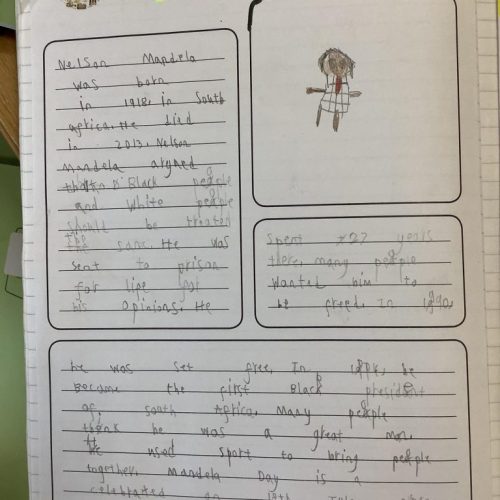 Nelson Mandela
was born
in 1918, in South
africa. He died
in 2013, Nelson
Mandela argued
Black people
and White people
should be treated
the same. He was
sent to prison
for life for
his opinions. He
Spent 27 years
there, many people
wanted him to
be freed. In 1990,
he was set free. In he
Became the first Black president
of south Africa. Many people
think he was a great man.
He used sport to bring people
together. Mandela Day is a
celebrated on 18th